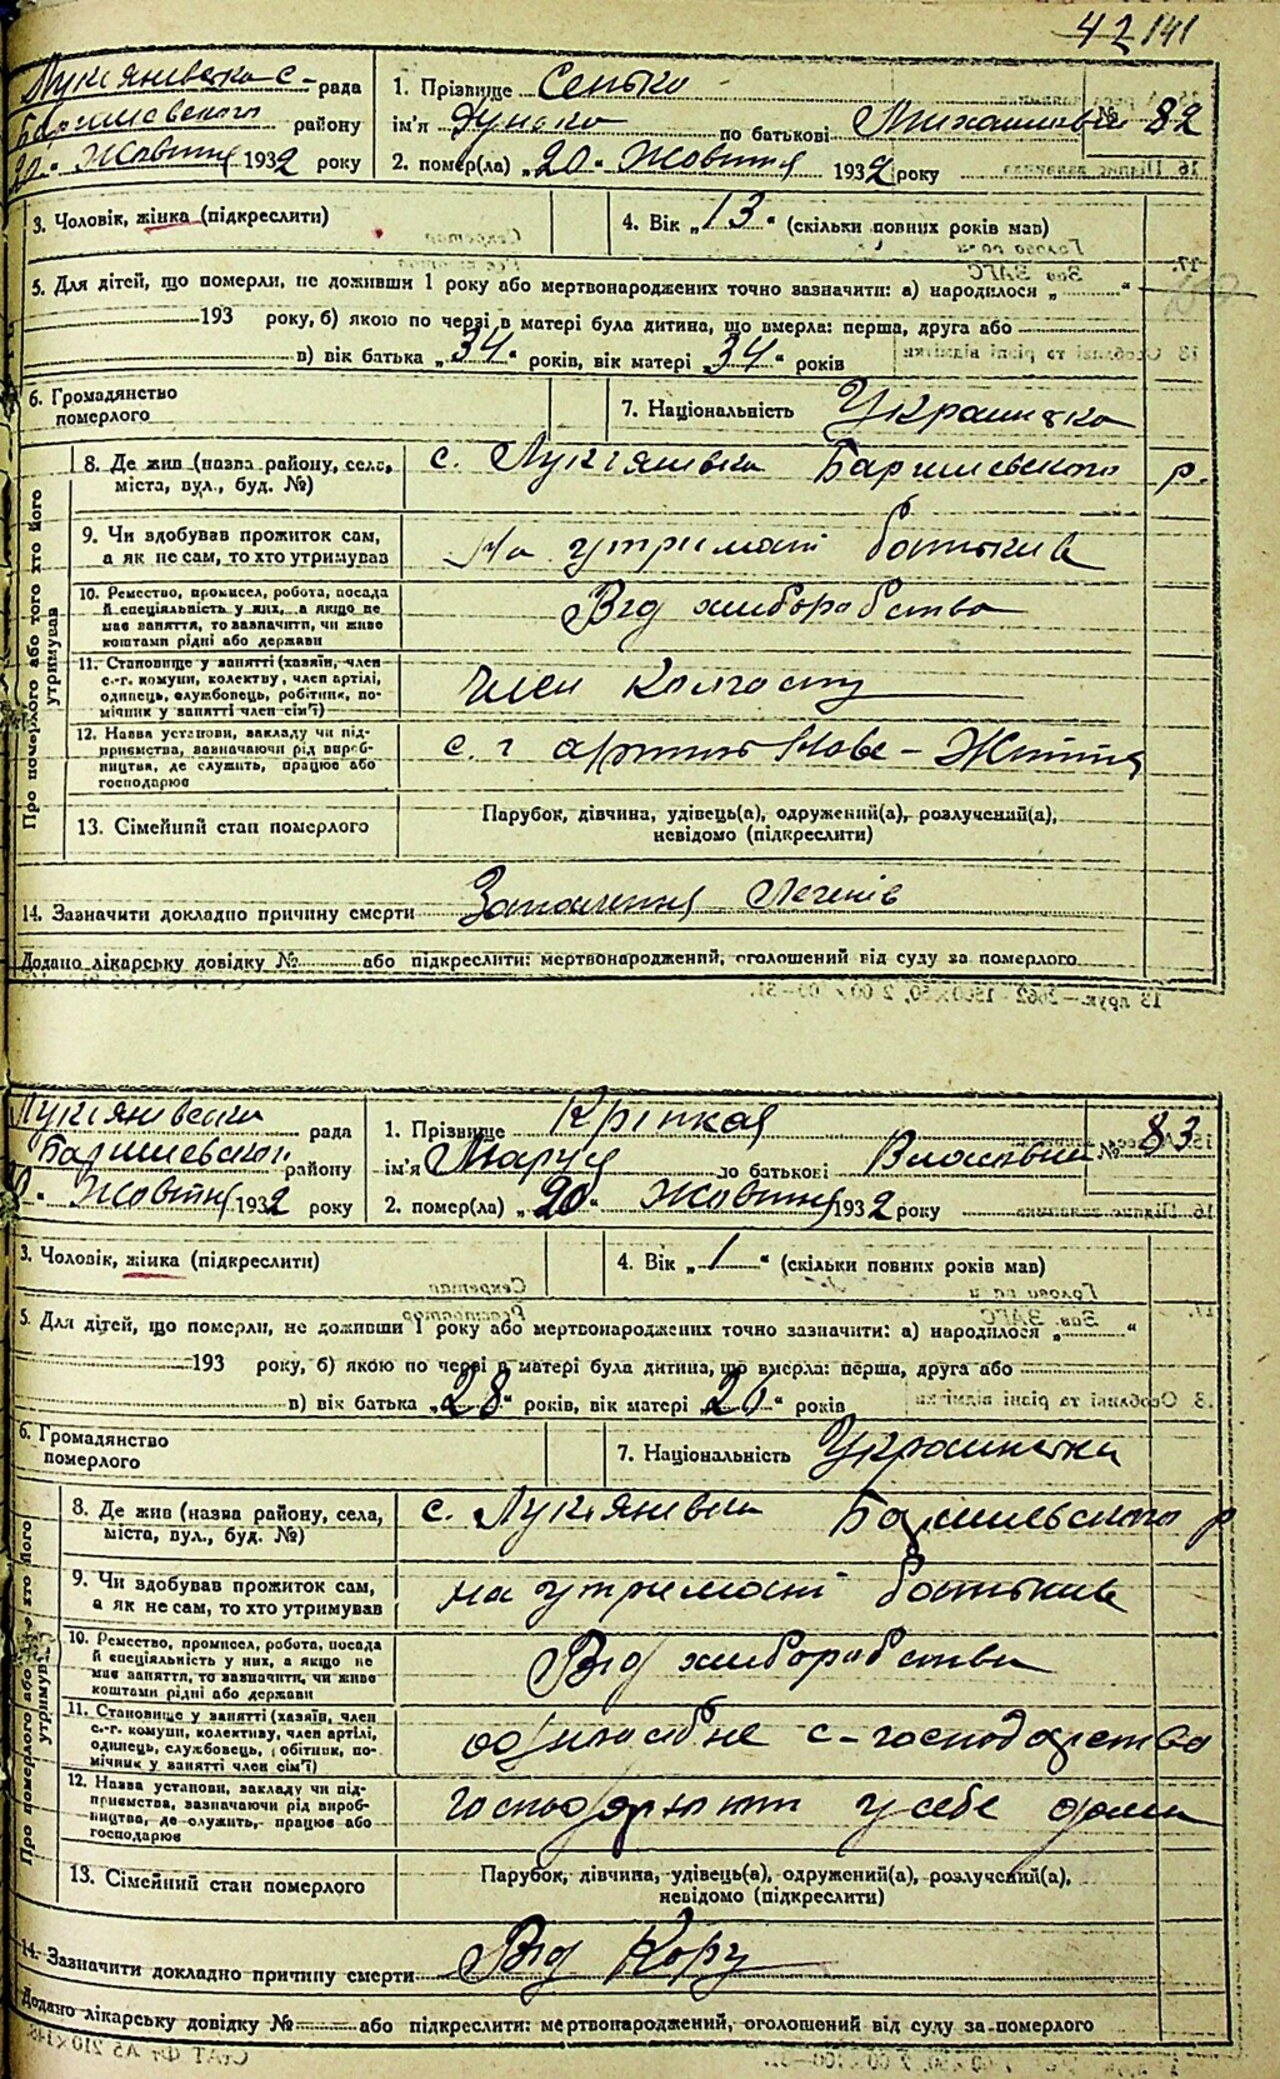 42 141
Лукіянівська с- рада
Баришевского району
20 " Жовтня 1932 року
1. Прізвище Сенько
ім'я Дунька по батькові Михайлівни
№ 82
2. помер(ла) „20" Жовтня 1932 року
3. Чоловік, жінка (підкреслити)
4. Вік „13" (скільки повних років мав)
5. Для дітей, що померли, не доживши 1 року або мертвонароджених точно зазначити: а) народилося „ "
193 року, б) якою по черзі в матері була дитина, що вмерла: перша, друга або
в) вік батька „34" років, вік матері „34" років
6. Громадянство
померлого
7. Національність Украінька
Про померлого або того хто його
утримував
8. Де жив (назва району, села,
міста, вул., буд. №)
с. Лукіянівка Баришевського р.
9. Чи здобував прожиток сам,
а як не сам, то хто утримував
На утримані батьків
10. Ремество, промисел, робота, посада
й спеціяльність у них, а якщо не
має заняття, то зазначити, чи живе
коштами рідні або держави
Від хліборобства
11. Становище у занятті (хазяїн, член
с.-г. комуни, колективу, член артілі,
одинець, службовець, робітник, по-
мічник у занятті член сім'ї)
член колгоспу
12. Назва установи, закладу чи під-
приємства, зазначаючи рід вироб-
ництва, де служить, працює або
господарює
с. г артіль Нове - Життя
13. Сімейний стан померлого
Парубок, дівчина, удівець(а), одружений(а), розлучений(а),
невідомо (підкреслити)
14. Зазначити докладно причину смерти Запаления Легенів
Додано лікарську довідку № або підкреслити: мертвонароджений, оголошений від суду за померлого
Лукіянівська рада
Баришевського району
" Жовтня 1932 року
1. Прізвище Кріпкая
ім'я Маруся по батькові Власівни
№ 83
2. помер(ла) „20" Жовтня 1932 року
3. Чоловік, жінка (підкреслити)
4. Вік „1" (скільки повних років мав)
5. Для дітей, що померли, не доживши 1 року або мертвонароджених точно зазначити: а) народилося „ "
193 року, б) якою по черзі в матері була дитина, що вмерла: перша, друга або
в) вік батька „28" років, вік матері „26" років
6. Громадянство
померлого
7. Національність Украінка
Про померлого або того хто його
утримував
8. Де жив (назва району, села,
міста, вул., буд. №)
с. Лукіянівка Баришевського р
9. Чи здобував прожиток сам,
а як не сам, то хто утримував
на утримані батьків
10. Ремество, промисел, робота, посада
й спеціяльність у них, а якщо не
має заняття, то зазначити, чи живе
коштами рідні або держави
Від хліборобства
11. Становище у занятті (хазяїн, член
с.-г. комуни, колективу, член артілі,
одинець, службовець, робітник, по-
мічник у занятті член сім'ї)
одноосібне с-господарство
12. Назва установи, закладу чи під-
приємства, зазначаючи рід вироб-
ництва, де служить, працює або
господарює
господарюють у себе дома
13. Сімейний стан померлого
Парубок, дівчина, удівець(а), одружений(а), розлучений(а),
невідомо (підкреслити)
14. Зазначити докладно причину смерти Від Кору
Додано лікарську довідку № або підкреслити: мертвонароджений, оголошений від суду за померлого